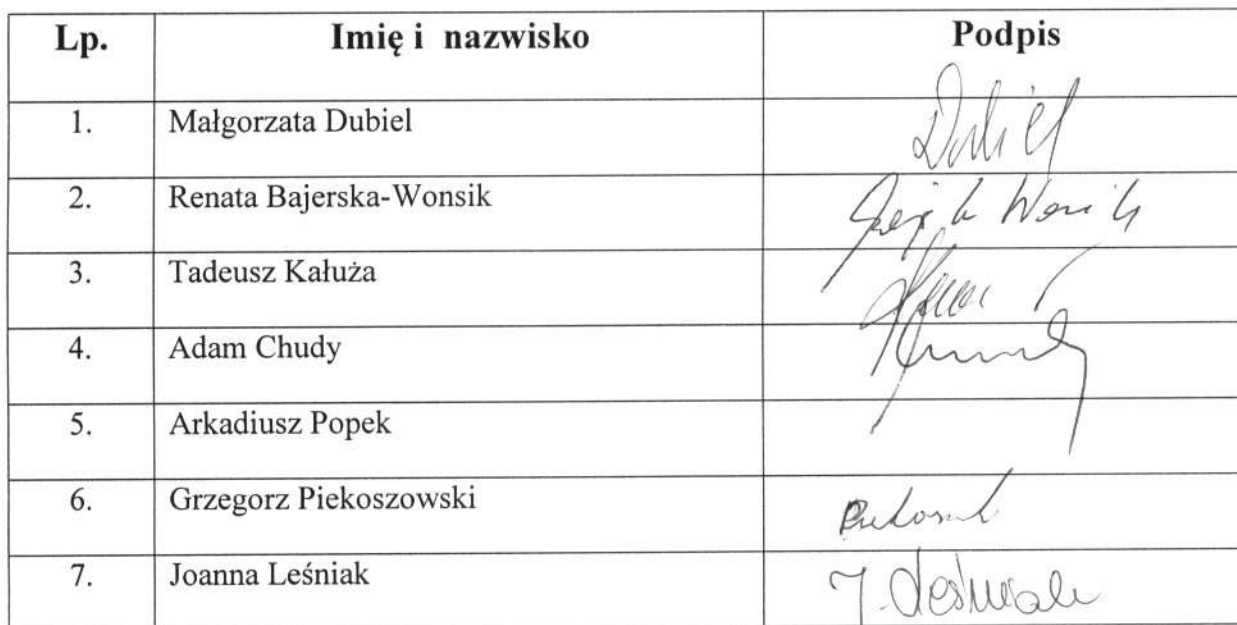 Lp. Imię i nazwisko Podpis
1. Małgorzata Dubiel Dubiel
2. Renata Bajerska-Wonsik
3. Tadeusz Kałuża
4. Adam Chudy
5. Arkadiusz Popek
6. Grzegorz Piekoszowski
7. Joanna Leśniak J. Leśniak